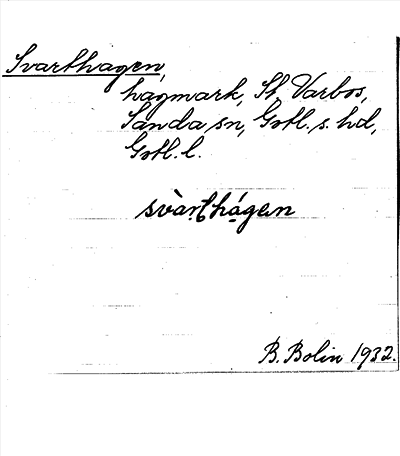 Svarthagen,
hagmark, St. Varbos,
Sanda sn, Gotl. s. hd,
Gotl. l.
svàrthágen
B. Bolin 1932.